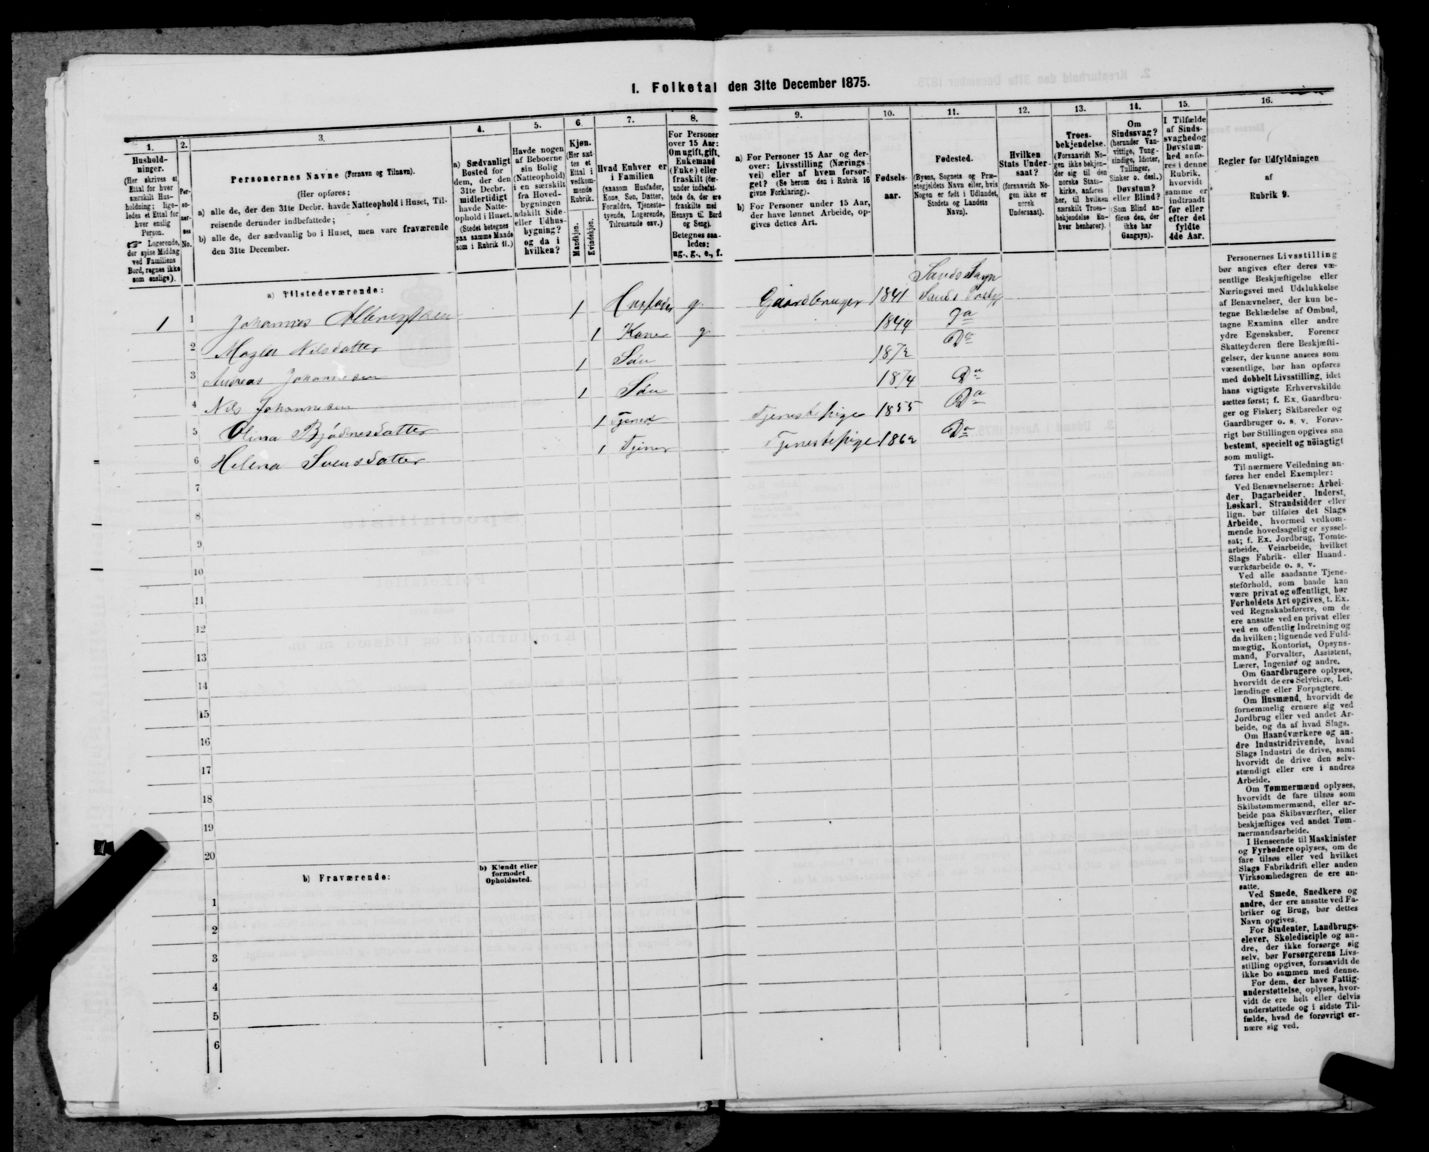 I. Folketal den 31te December 1875.
1.
Husholdninger.
(Her skrives et Ettal for hver særskilt Husholdning; ligeledes et Ettal for hver enslig Person.
☞ Logerende, der spise Middag ved Familiens Bord, regnes ikke som enslige).
2.
Personernes No.
3.
Personernes Navne (Fornavn og Tilnavn).
(Her opføres:
a) alle de, der den 31te Decbr. havde Natteophold i Huset, Tilreisende derunder indbefattede;
b) alle de, der sædvanlig bo i Huset, men vare fraværende den 31te December.
4.
a) Sædvanligt Bosted for dem, der den 31te Decbr. midlertidigt havde Natteophold i Huset.
(Stedet betegnes paa samme Maade som i Rubrik 11.)
5.
Havde nogen af Beboerne sin Bolig (Natteophold) i en særskilt fra Hovedbygningen adskilt Side- eller Udhusbygning? og da i hvilken?
6.
Kjøn.
(Her sættes et Ettal i vedkommende Rubrik.
Mandkjøn.
Kvindekjøn.
7.
Hvad Enhver er i Familien
(saasom Husfader, Kone, Søn, Datter, Forældre, Tjenestetyende, Logerende, Tilreisende osv.)
8.
For Personer over 15 Aar: Om ugift, gift, Enkemand (Enke) eller fraskilt (derunder indbefattede de, der ere fraskilte med Hensyn til Bord og Seng).
Betegnes saaledes:
ug., g., e., f.
9.
a) For Personer 15 Aar og derover: Livsstilling (Næringsvei) eller af hvem forsørget? (Se herom den i Rubrik 16 givne Forklaring).
b) For Personer under 15 Aar, der have lønnet Arbeide, opgives dettes Art.
10.
Fødselsaar.
11.
Fødested.
(Byens, Sognets og Præstegjeldets Navn eller, hvis Nogen er født i Udlandet, Stedets og Landets Navn).
12.
Hvilken Stats Undersaat?
(forsaavidt Nogen ikke er norsk Undersaat).
13.
Troesbekjendelse.
(Forsaavidt Nogen ikke bekjender sig til den norske Statskirke, anføres her, til hvilken særskilt Troesbekjendelse Enhver henhører).
14.
Om Sindssvag?
(herunder Vanvittige, Tungsindige, Idioter, Tullinger, Sinker o. desl.)
Døvstum? eller Blind?
(Som Blind anføres den, der ikke har Gangsyn).
15.
I Tilfælde af Sindssvaghed og Døvstumhed anføres i denne Rubrik, hvorvidt samme er indtraadt før eller efter det fyldte 4de Aar.
16.
Regler for Udfyldningen
af
Rubrik 9.
a) Tilstedeværende:
1 1 Johannes 1 Husfader g Gaardbruger 1841 Sands Sogn
2 Nilsdatter 1 Kone g 1844 Do
3 Andreas Johannesen 1 Søn 1872 Do
4 Nils Johannesen 1 Søn 1874 Do
5 Olina Bjødnesdatter 1 Tjener Tjenestepige 1855 Do
6 Helena Svensdatter 1 Tjener Tjenestepige 1862 Do
7
8
9
10
11
12
13
14
15
16
17
18
19
20
b) Fraværende:
b) Kjendt eller formodet Opholdssted.
1
2
3
4
5
6
Personernes Livsstilling
bør angives efter deres væ-
sentlige Beskjæftigelse eller
Næringsvei med Udelukkelse
af Benævnelser, der kun be-
tegne Beklædelse af Ombud,
tagne Examina eller andre
ydre Egenskaber. Forener
Skatteyderen flere Beskjæfti-
gelser, der kunne ansees som
væsentlige, bør han opføres
med dobbelt Livsstilling, idet
hans vigtigste Erhvervskilde
sættes først; f. Ex. Gaardbru-
ger og Fisker; Skibsreder og
Gaardbruger o. s. v. Forøv-
rigt bør Stillingen opgives saa
bestemt, specielt og nöiagtigt
som muligt.
Til nærmere Veiledning an-
føres her endel Exempler:
Ved Benævnelserne: Arbei-
der, Dagarbeider, Inderst,
Løskarl, Strandsidder eller
lign. bør tilføies det Slags
Arbeide, hvormed vedkom-
mende hovedsagelig er syssel-
sat; f. Ex. Jordbrug, Tomte-
arbeide, Veiarbeide, hvilket
Slags Fabrik- eller Haand-
værksarbeide o. s. v.
Ved alle saadanne Tjene-
steforhold, som baade kan
være privat og offentligt, bør
Forholdets Art opgives, t. Ex.
ved Regnskabsførere, om de
ere ansatte ved en privat eller
ved en offentlig Indretning og
da hvilken; lignende ved Fuld-
mægtig, Kontorist, Opsyns-
mand, Forvalter, Assistent,
Lærer, Ingeniør og andre.
Om Gaardbrugere oplyses,
hvorvidt de ere Selveiere, Lei-
lændinge eller Forpagtere.
Om Husmænd, hvorvidt de
fornemmelig ernære sig ved
Jordbrug eller ved andet Ar-
beide, og da af hvad Slags.
Om Haandværkere og an-
dre Industridrivende, hvad
Slags Industri de drive, samt
hvorvidt de drive den selv-
stændigt eller ere i andres
Arbeide.
Om Tømmermænd oplyses,
hvorvidt de fare tilsøs som
Skibstømmermænd, eller ar-
beide paa Skibsværfter, eller
beskjæftiges ved andet Tøm-
mermandsarbeide.
I Henseende til Maskinister
og Fyrbødere oplyses, om de
fare tilsøs eller ved hvilket
Slags Fabrikdrift eller anden
Virksomhedsgren de ere an-
satte.
Ved Smede, Snedkere og
andre, der ere ansatte ved Fa-
briker og Brug, bør dettes
Navn opgives.
For Studenter, Landbrugs-
elever, Skoledisciple og an-
dre, der ikke forsørge sig
selv, bør Forsørgerens Livs-
stilling opgives, forsaavidt de
ikke bo sammen med denne.
For dem, der have Fattig-
understøttelse, oplyses, hvor-
vidt de ere helt eller delvis
understøttede og i sidste Til-
fælde, hvad de forøvrigt er-
nære sig ved.